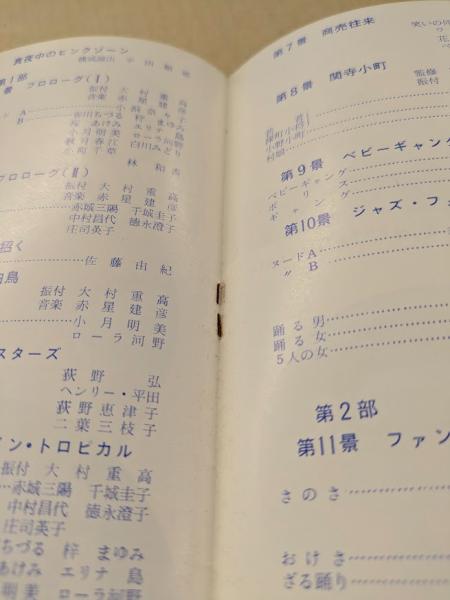 真夜中のピンクゾーン
構成演出
第1部
景 プロローグ(Ⅰ)
振付 大村重高
音楽 赤星建彦
ード A
香川ちづる 梓 まゆみ
桜 あけみ エリナ 島
小月明美 ローラ河野
秋月春江 白川みどり
小町千草
林 和
プロローグ(Ⅱ)
振付 大村重高
音楽 赤星建彦
赤城三陽 千城圭子
中村昌代 徳永澄子
庄司英子
招く
佐藤由紀
白鳥
振付 大村重高
音楽 赤星建彦
小月明美
ローラ河野
スターズ
荻野 弘
ヘンリー・平田
荻野恵津子
二葉三枝子
イン・トロピカル
振付 大村重高
…赤城三陽 千城圭子
中村昌代 徳永澄子
庄司英子
ちづる 梓 まゆみ
あけみ エリナ 島
明美 ローラ河野
第7景 商売往来
笑いの
第8景 関寺小町
監修
振付
小野小町
村娘
第9景 ベビーギャング
ベビーギャング
ポリス
ギャング
第10景 ジャズ・フォ
ヌードA
〃 B
踊る男
踊る女
5人の女
第2部
第11景 ファン
さのさ
おけさ
ざる踊り